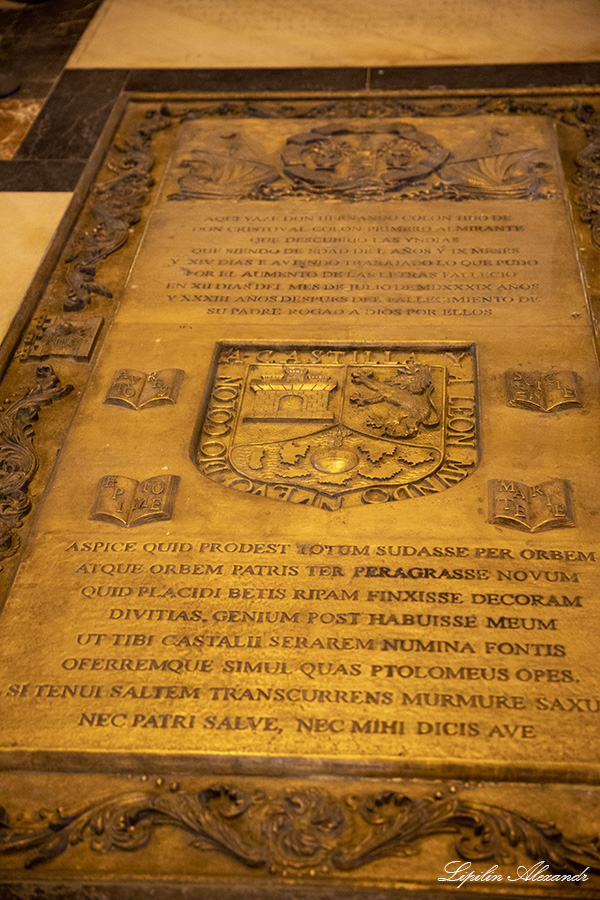 AQUI YAZE DON HERNANDO COLON HIJO DE
DON CRISTOVAL COLON PRIMERO ALMIRANTE
QUE DESCUBRIO LAS YNDIAS
QUE SIENDO DE EDAD DE L AÑOS Y IX MESES
Y XIV DIAS E AVIENDO TRABAJADO LO QUE PUDO
POR EL AUMENTO DE LAS LETRAS FALLECIO
EN XII DIAS DEL MES DE JULIO DE MDXXXIX AÑOS
Y XXXIII AÑOS DESPUES DEL FALLECIMIENTO DE
SU PADRE ROGAD A DIOS POR ELLOS
A CASTILLA Y A LEON MUNDO NUEVO DIO COLON
EPI
COME
MATE
ASPICE QUID PRODEST TOTUM SUDASSE PER ORBEM
ATQUE ORBEM PATRIS TER PERAGRASSE NOVUM
QUID PLACIDI BETIS RIPAM FINXISSE DECORAM
DIVITIAS, GENIUM POST HABUISSE MEUM
UT TIBI CASTALII SERAREM NUMINA FONTIS
OFERREMQUE SIMUL QUAS PTOLOMEUS OPES.
SI TENUI SALTEM TRANSCURRENS MURMURE SAXU
NEC PATRI SALVE, NEC MIHI DICIS AVE
Lipilin Alexandr